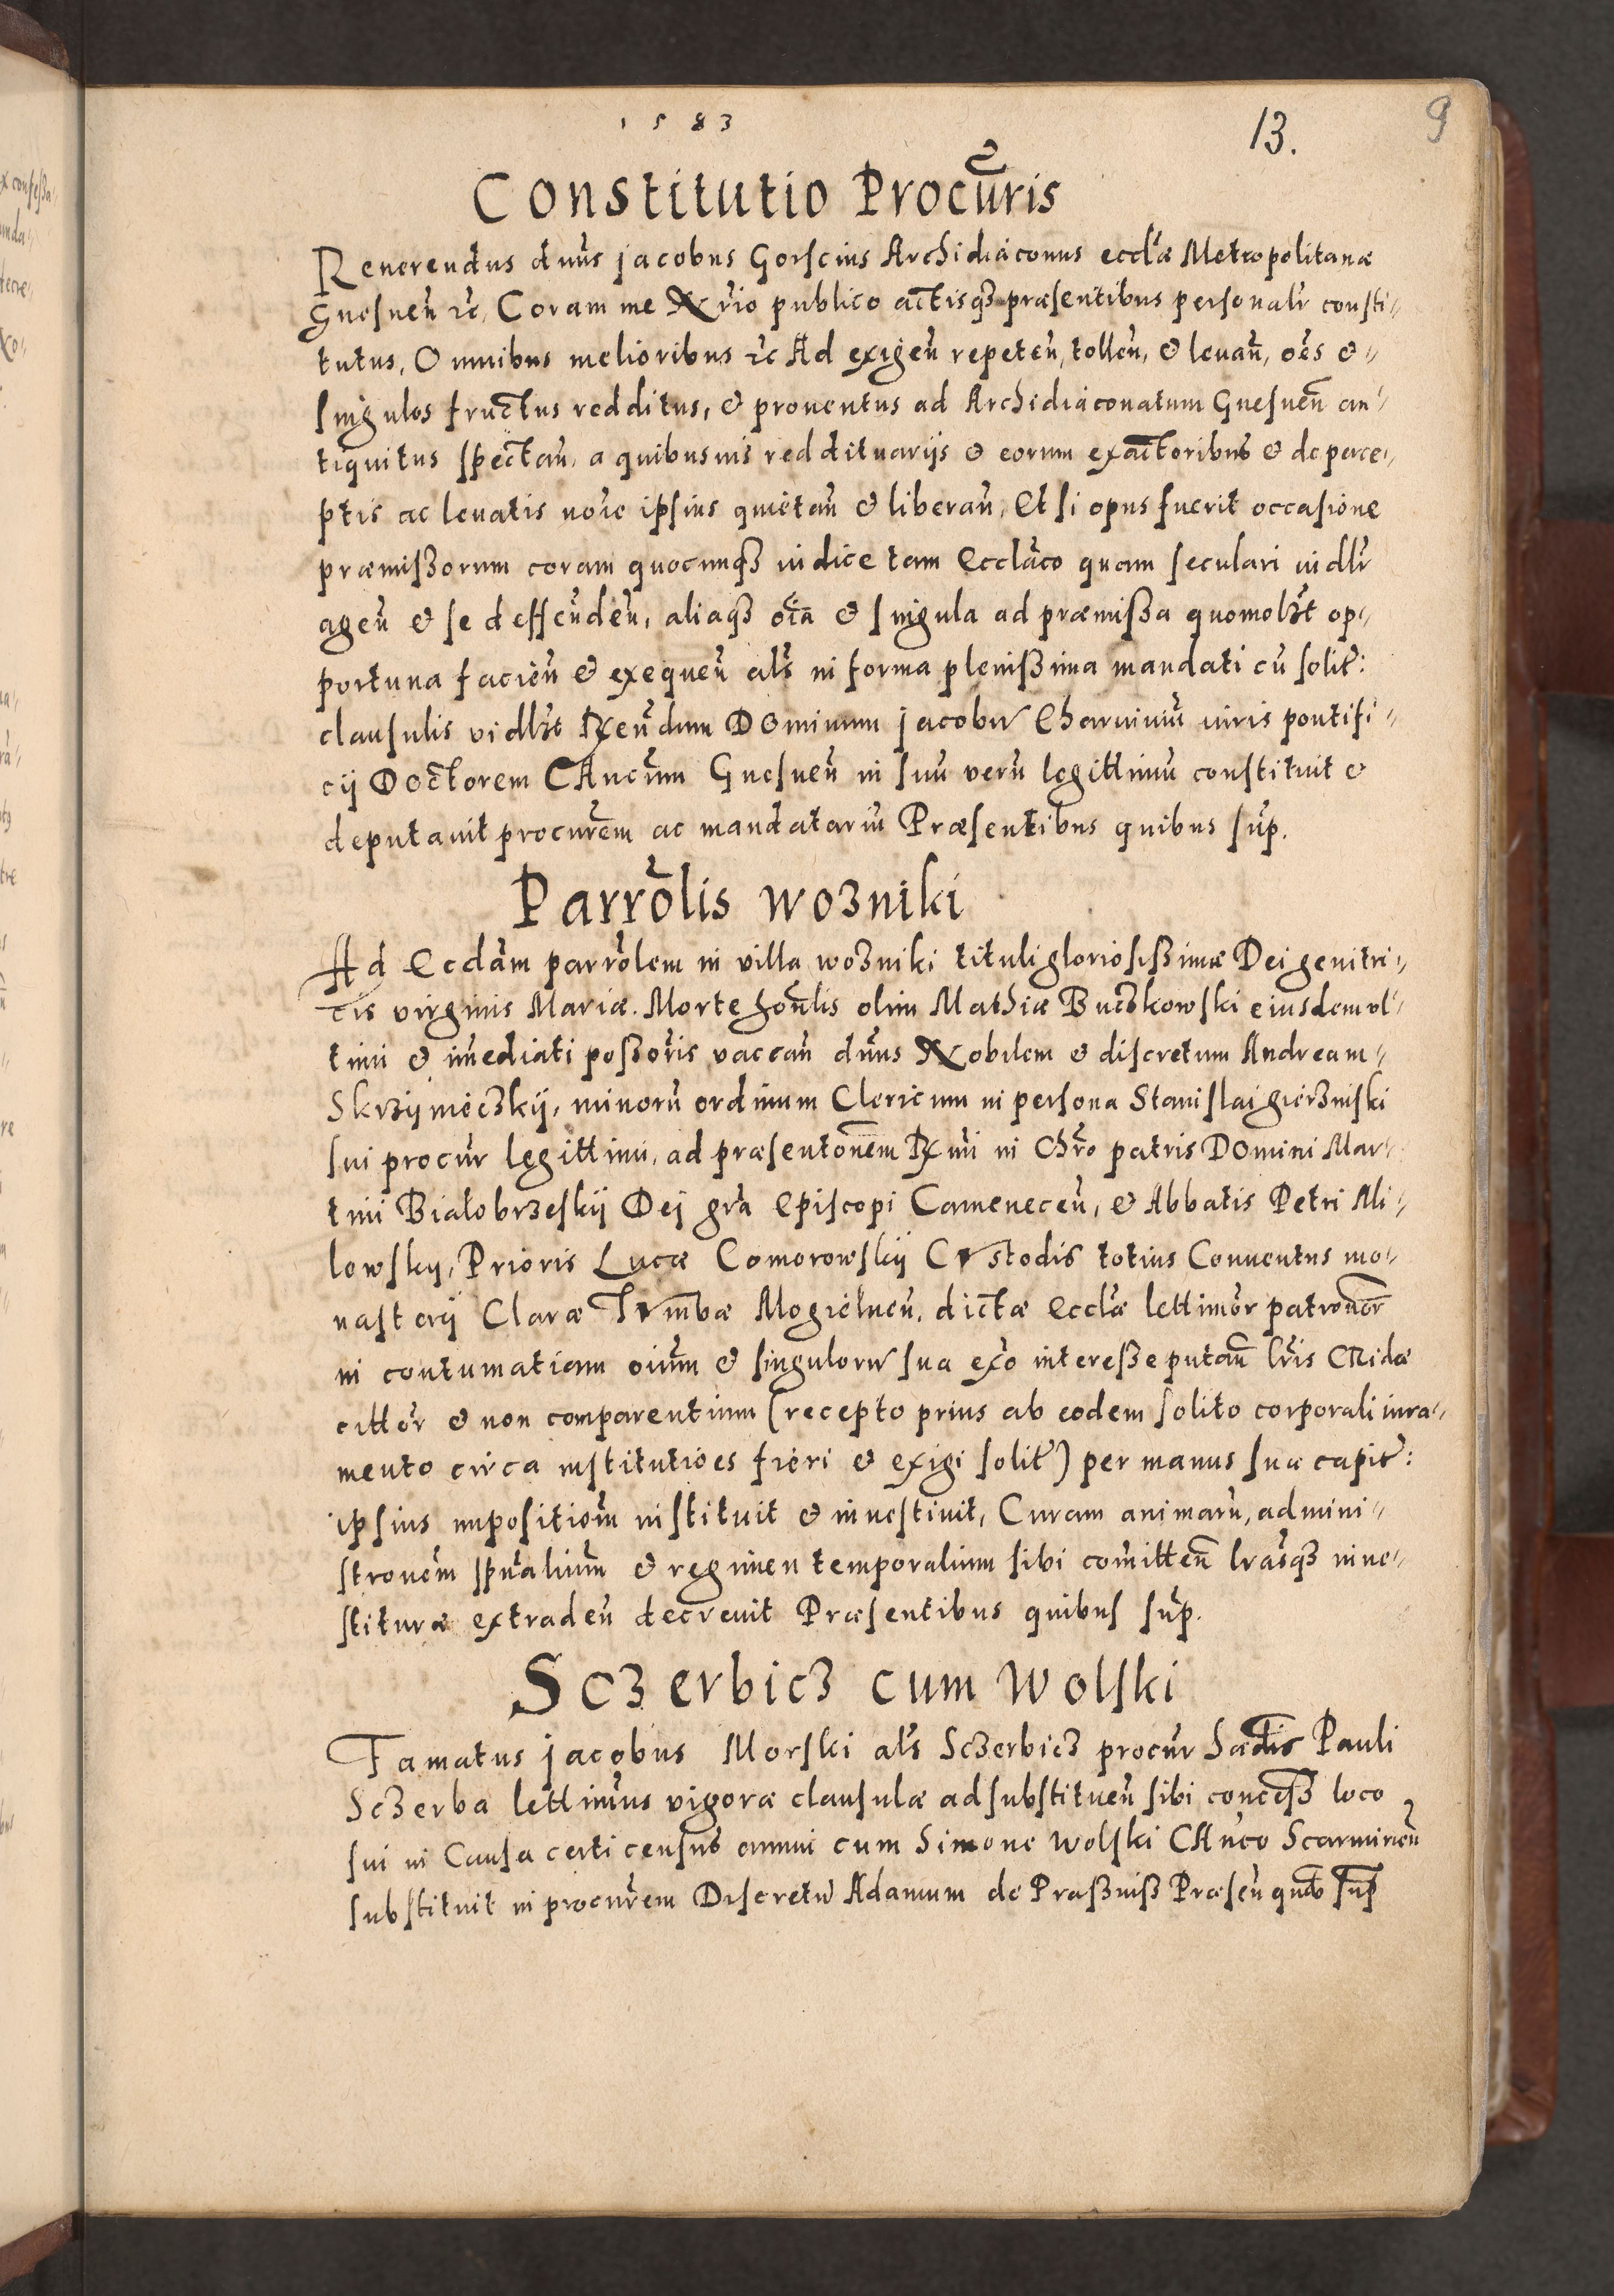 1583
13.
9
Constitutio Procuris
Reuerendus dnus jacobus Gorscius Archidiaconus eccliæ Metropolitanæ
Gnesnen etc. Coram me Nrio publico actisq3 præsentibus personalr consti-
tutus, Omnibus melioribus etc Ad exigen repeten, tollen, & leuan, oes &
singulos fructus redditus, & prouentus ad Archidiaconatum Gnesnen an-
tiquitus spectan, a quibusuis reddituarijs & eorum exactoribus & de perce-
ptis ac leuatis noie ipsius quietan & liberan, Et si opus fuerit occasione
præmißorum coram quocunq3 iudice tam Eccliaco quam seculari iudlr
agen & se deffenden, aliaq3 oia & singula ad præmißa quomol3t op-
portuna facien & exequen als in forma plenißima mandati cu solit:
clausulis vidl3t Rendum Dominum jacobu Charuiniu iuris pontifi-
cij Doctorem CAncum Gnesnen in suu veru legittimu constituit &
deputauit procurem ac mandatariu Præsentibus quibus sup.
Parrolis wo3niki
Ad Eccliam parrolem in villa wo3niki tituli gloriosißimæ Dei genitri-
cis virginis Mariæ. Morte honlis olim Mathiæ Buc3kowski eiusdem vl-
timi & imediati poßoris vaccan dnus Nobilem & discretum Andream
Skr3ymiec3kij, minoru ordinum Clericum in persona Stanislai gier3niski
sui procur legittimi, ad præsentonem Rmi in Chro patris Domini Mar-
tini Bialobr3eskij Dej gra Episcopi Camenecen, & Abbatis Petri Mi-
lowsky, Prioris Lucæ Comorowskij Custodis totius Conuentus mo-
nasterij Claræ Tumbæ Mogielnen, dictæ Eccliæ lettimor patronor
in contumatiam oium & singuloru sua exo intereße putan lris Cridæ
cittor & non comparentium (recepto prius ab eodem solito corporali iura-
mento circa institutioes fieri & exigi solit) per manus suæ capit:
ipsius impositiom instituit & inuestiuit, Curam animaru, admini-
stronem spualium & regimen temporalium sibi comitten lrasq3 inue-
stituræ extraden decreuit Præsentibus quibus sup.
Sc3erbic3 cum Wolski
Famatus jacobus Morski als Sc3erbic3 procur Pauli
Sc3erba lettimus vigoræ clausulæ ad substituen sibi conceß loco
sui in Causa certi census annui cum Simone Wolski CAnco Scarmirien
substituit in procurem Discretu Adamum de Praßniß Præsen quib sup